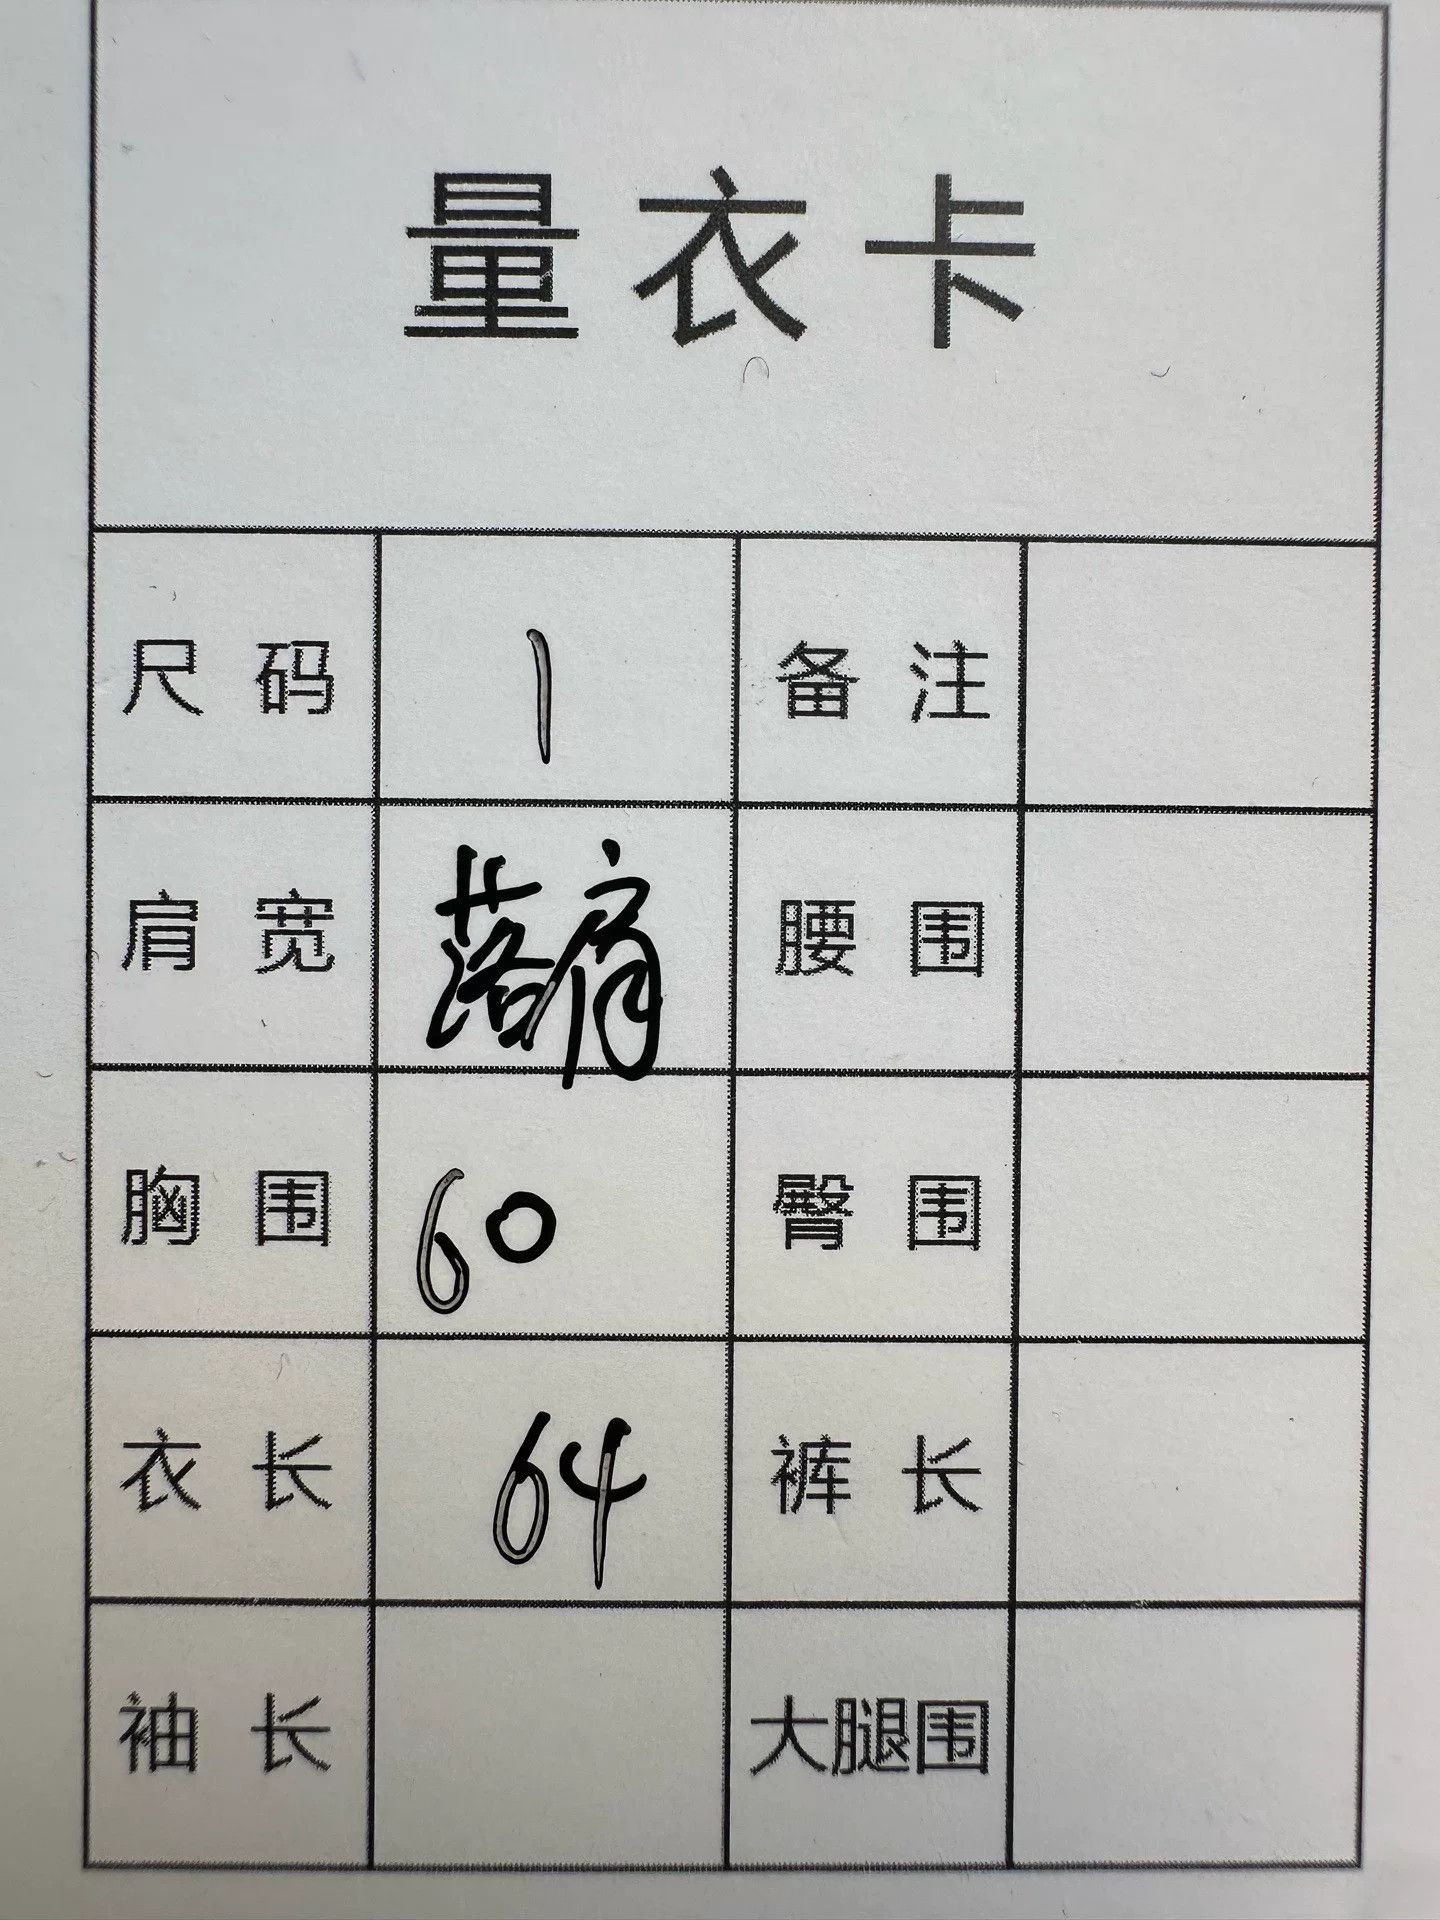 量衣卡
尺码 1 备注
肩宽 落肩 腰围
胸围 60 臀围
衣长 64 裤长
袖长 大腿围